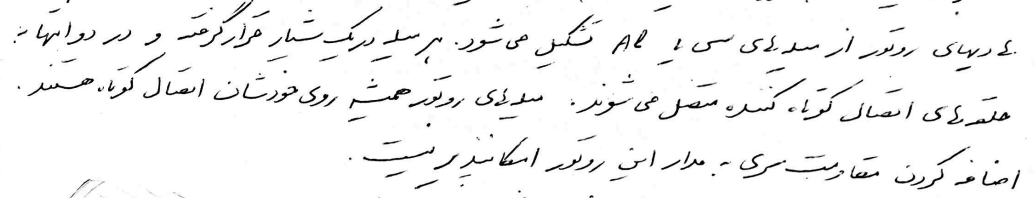 هادیهای روتور از میله‌های مسی یا Al تشکیل می‌شود. هر میله در یک شیار قرار گرفته و در دو انتها به
حلقه‌های اتصال کوتاه کننده متصل می‌شوند. میله‌های روتور همیشه روی خودشان اتصال کوتاه هستند.
اضافه کردن مقاومت سری به مدار این روتور امکانپذیر نیست.